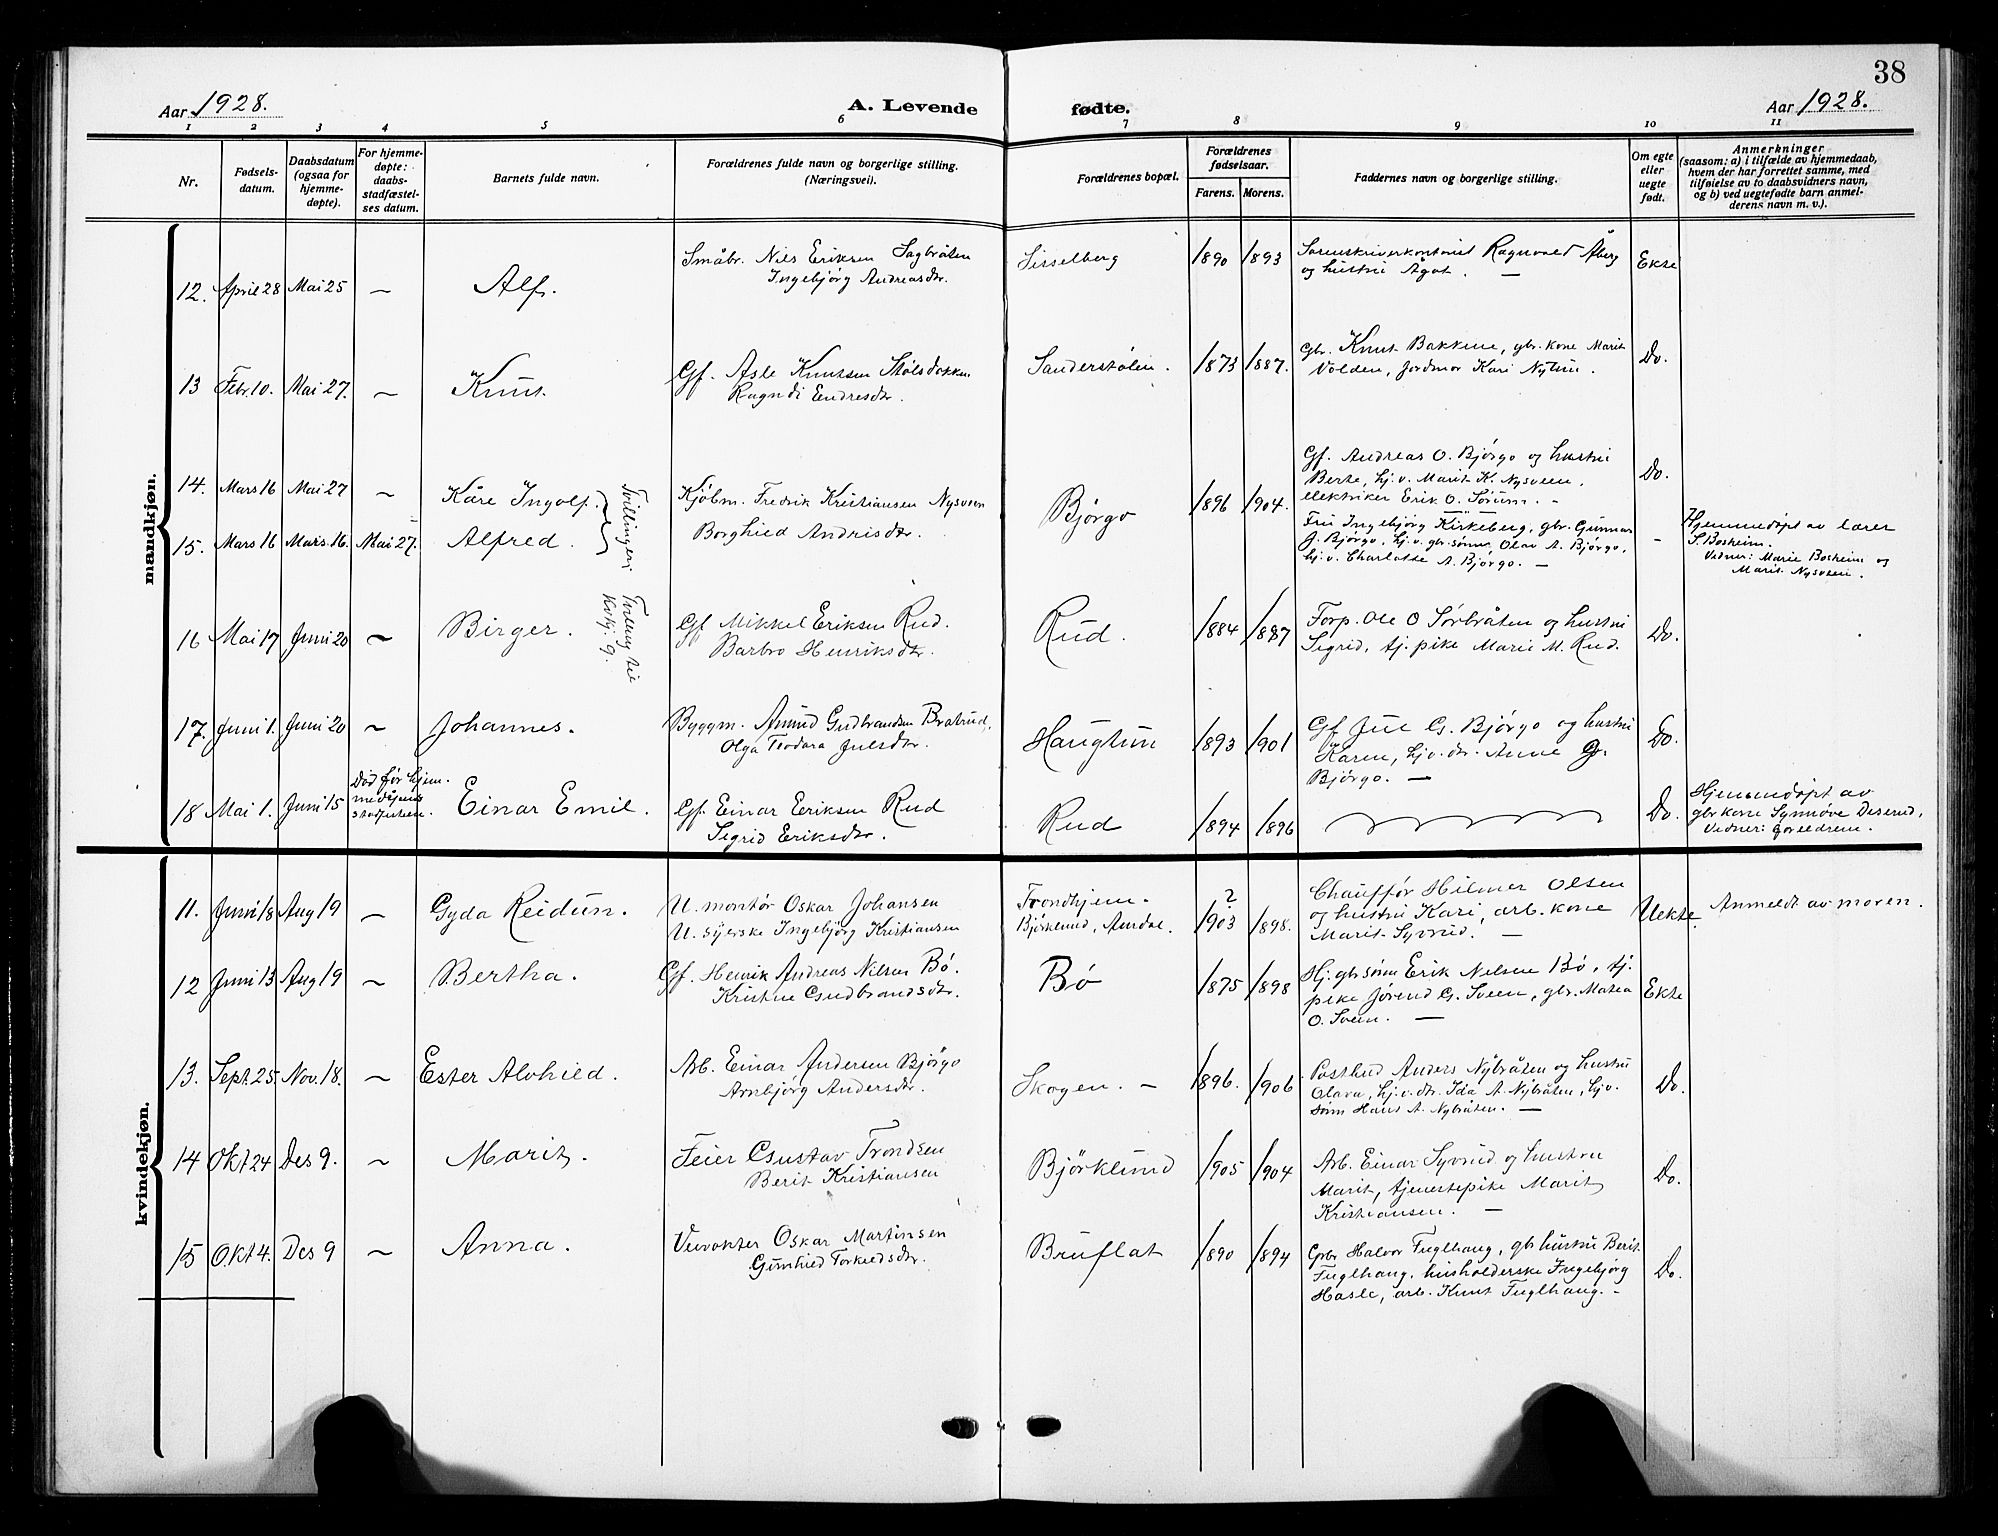 38
Aar 1928.
A. Levende fødte.
Aar 1928.
1 2 3 4 5 6 7 8 9 10 11
Nr.
Fødsels-
datum.
Daabsdatum
(ogsaa for
hjemme-
døpte).
For hjemme-
døpte:
daabs-
stadfæstel-
ses datum.
Barnets fulde navn.
Forældrenes fulde navn og borgerlige stilling.
(Næringsvei).
Forældrenes bopæl.
Forældrenes
fødselsaar.
Farens. Morens.
Faddernes navn og borgerlige stilling.
Om egte
eller
uegte
født.
Anmerkninger
(saasom: a) i tilfælde av hjemmedaab,
hvem der har forrettet samme, med
tilføielse av to daabsvidners navn,
og b) ved uegtefødte barn anmel-
derens navn m. v.).
mandkjøn.
12. April 28 Mai 25 — Alf.
Småbr. Nils Eriksen Sagbråten
Ingebjørg Andreasdtr.
Sisselberg 1890 1893
Sorenskriverkontorist Ragnvald Åberg
og hustru Ågot. —
Ekte
13 Febr. 10. Mai 27. — Knut.
Gf. Asle Knutsen Stølsdokken
Ragndi Endresdtr.
Sanderstølen. 1873 1887.
Gbr. Knut Bakkene, gbr. kone Marit
Volden, jordmor Kari Nytun.
Do.
14. Mars 16 Mai 27 — Kåre Ingolf.
15. Mars 16 Mars. 16. Mai 27. Alfred.
Tvillinger
Kjöbm. Fredrik Kristiansen Nysveen
Borghild Andrisdtr.
Bjørgo 1896 1904.
Gf. Andreas O. Bjørgo og hustru
Berte, hj. v. Marit K. Nysveen,
elektriker Erik O. Sørum. -
Do.
Fru Ingebjørg Kirkeberg, gbr. Gunnar
J. Bjørgo, hj. v. gbr. sønn Olav A. Bjørgo,
hj. v. Charlotte A. Bjørgo. —
-
Hjemmedøpt av lærer
S. Bosheim.
Vidner: Marie Bosheim og
Marit Nysveen.
16 Mai 17 Juni 20 — Birger.
Tvilling til
Kvkj. 9.
Gf Mikkel Eriksen Rud.
Barbro Henriksdtr.
Rud. 1884 1887
Forp. Ole O Sørbråten og hustru
Sigrid, tj. pike Marie M. Rud.
Do.
17. Juni 1. Juni 20 — Johannes.
Byggm. Amund Gudbrandsen Bratrud.
Olga Teodora Julsdtr.
Haugtun 1893 1901
Gf Jul G. Bjørgo og hustru
Karen, hj. v. dtr. Anne G.
Bjørgo. —
Do.
18 Mai 1. Juni 15
Død før hjem-
Einar Emil.
Gf. Einar Eriksen Rud
Sigrid Eriksdtr.
Rud 1894 1896
Do.
Hjemmedøpt av
gbr kone Synnøve Diserud,
Vidner: foreldrene.
kvindekjøn.
11. Juni 18 Aug 19 — Gyda Reidun.
U. montör Oskar Johansen
U. syerske Ingebjörg Kristiansen
Trondhjem.
Björklund, Aurdal.
?
1903 1898.
Chaufför Hilmer Olsen
og hustru Kari, arb. kone
Marit Syvrud. —
Uekte.
Anmeldt av moren.
12 Juni 13 Aug 19 — Bertha.
Gf. Henrik Andreas Nilsen Bö.
Kristine Gudbrandsdtr.
Bö 1875 1898
Hj. gbr sønn Erik Nilsen Bö, tj.
pike Jörend G. Sveen, gbr. Matea
O. Sveen. —
Ekte
13. Sept. 25. Nov. 18. — Ester Alvhild.
Arb. Einar Andersen Björgo
Arnbjörg Andersdtr.
Skogen. — 1896. 1906.
Postbud Anders Nybråten og hustru
Olava, hj. v. dtr. Ida A. Nybråten, hj. v.
sønn Hans A. Nybråten. —
Do.
14 Okt 24 Des 9. — Marit.
Feier Gustav Trondsen
Berit Kristiansen
Björklund 1905 1904
Arb. Einar Syvrud og hustru
Marit, tjenestepike Marit
Kristiansen. —
Do.
15 Okt 4. Des 9 — Anna.
Veivokter Oskar Martinsen
Gunhild Torkildsdtr.
Bruflat 1890 1894
Gbr Halvor Fuglhaug, gbr hustru Berit
Fuglhaug, husholderske Ingebjörg
Hasle, arb. Knut Fuglhaug. -
Do.